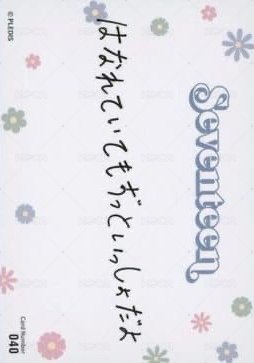 Seventeen
はなれていてもずっといっしょだよ
© PLEDIS
Card Number
040